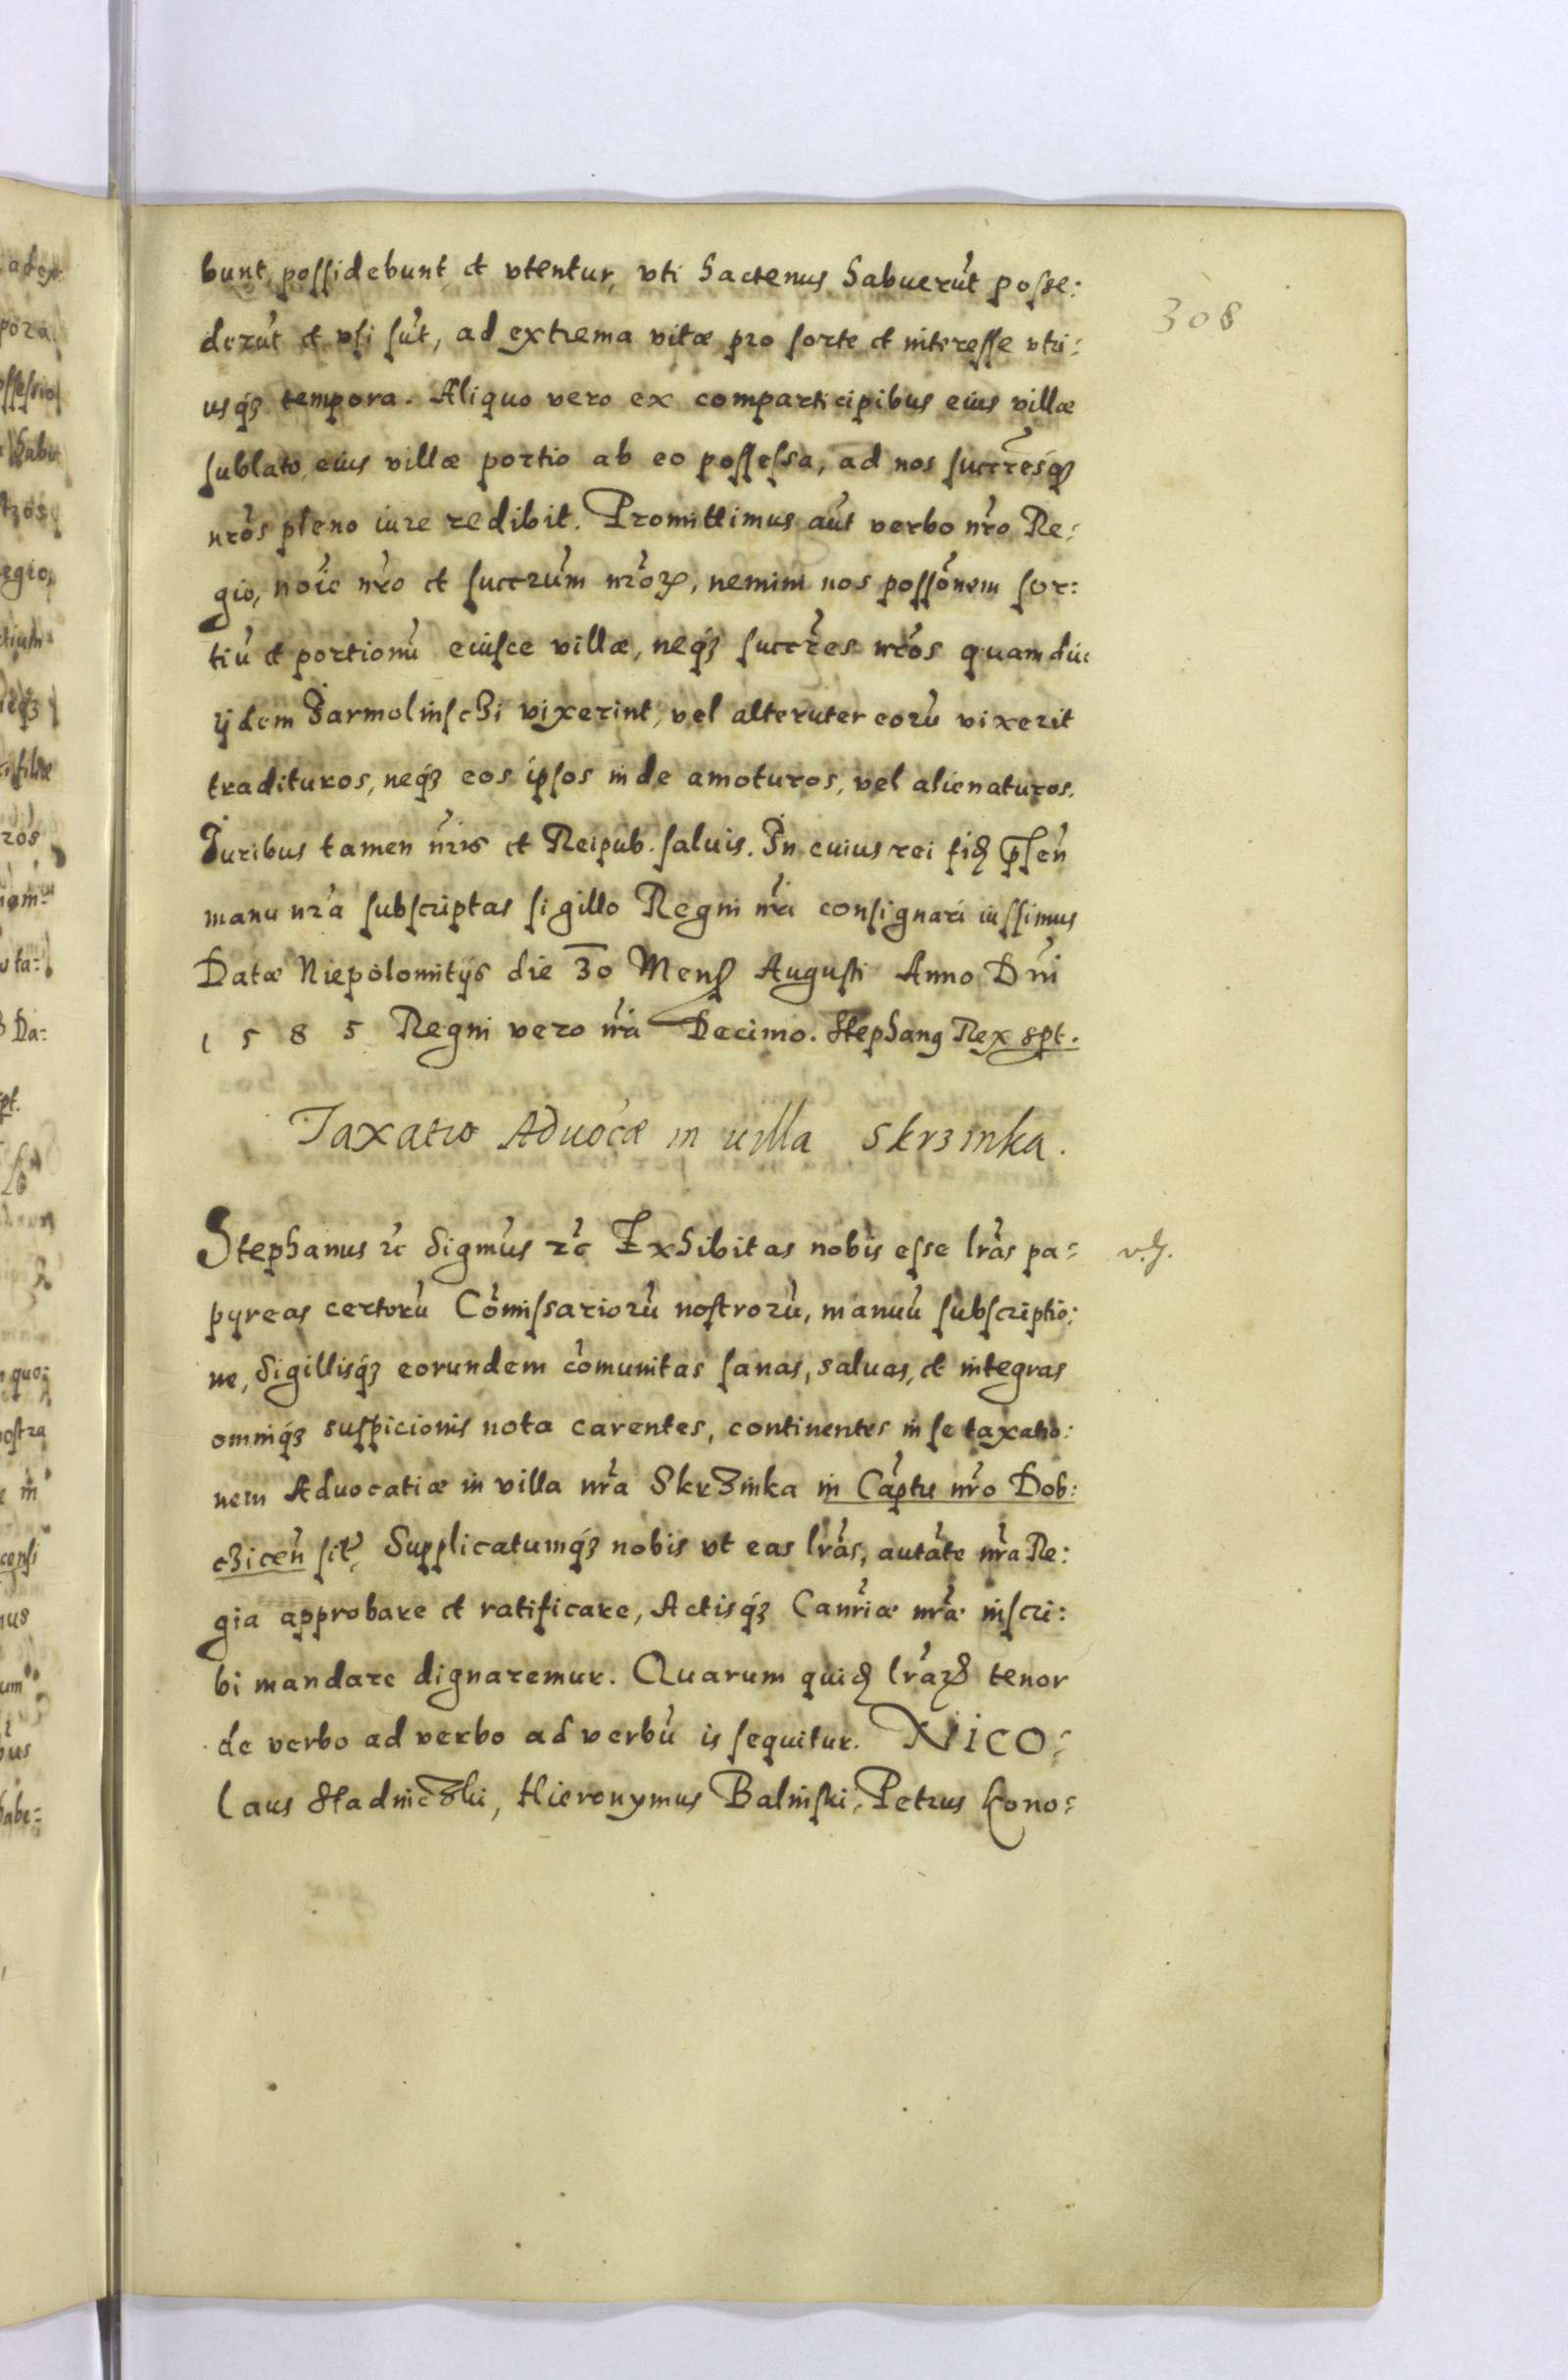 308
bunt, possidebunt, et vtentur, vti hactenus habuerūt posse:
derūt et vsi sūt, ad extrema vitæ pro sorte et interesse vtri:
usq́ꝫ tempora. Aliquo vero ex comparticipibus eius villæ
sublato, eius villæ portio ab eo possessa, ad nos succr̃esq́ꝫ
nr̃os pleno iure redibit. Promittimus aũt verbo nr̃o Re:
gio, noĩe nr̃o et succrũm nr̃oꝝ, nemini nos possõnem sor:
tiū et portionū eiusce villæ, neq́ꝫ succr̃es nr̃os quam diu
ijdem Jarmolinschi vixerint, vel alteruter eorū vixerit
tradituros, neq́ꝫ eos ipsos inde amoturos, vel alienaturos.
Juribus tamen nr̃is et Reipub. saluis. In cuius rei fiđ p̃sen̄
manu nr̃a subscriptas sigillo Regni nr̃i consignari iussimus
Datæ Niepolomitijs die 30 Mens̨ Augusti Anno Dñi
1585 Regni vero nr̃i Decimo. Stephanꝯ Rex spt.
Taxatio Aduocæ in uilla Skrzinka.
Stephanus ꝛc̃ Sigm̃us ꝛc̃ Exhibitas nobis esse lr̃as pa:
v.s.
pyreas certorū Cõmissariorū nostrorū, manuū subscriptio:
ne, Sigillisq́ꝫ eorundem cõmunitas sanas, saluas, et integras
omniq́ꝫ suspicionis nota carentes, continentes in se taxatio:
nem Aduocatiæ in villa nr̃a Skrzinka in Cap̃tu nr̃o Dob:
czicen̄ sit̃. Supplicatumq́ꝫ nobis vt eas lr̃as, autãte nr̃a Re:
gia approbare et ratificare, Actisq́ꝫ Canr̃iæ nr̃æ inscri:
bi mandare dignaremur. Quarum quiđ lr̃aꝝ tenor
de verbo ad verbo ad verbū is sequitur. NICO:
laus Stadniczki, Hieronymus Balinski, Petrus Kono: